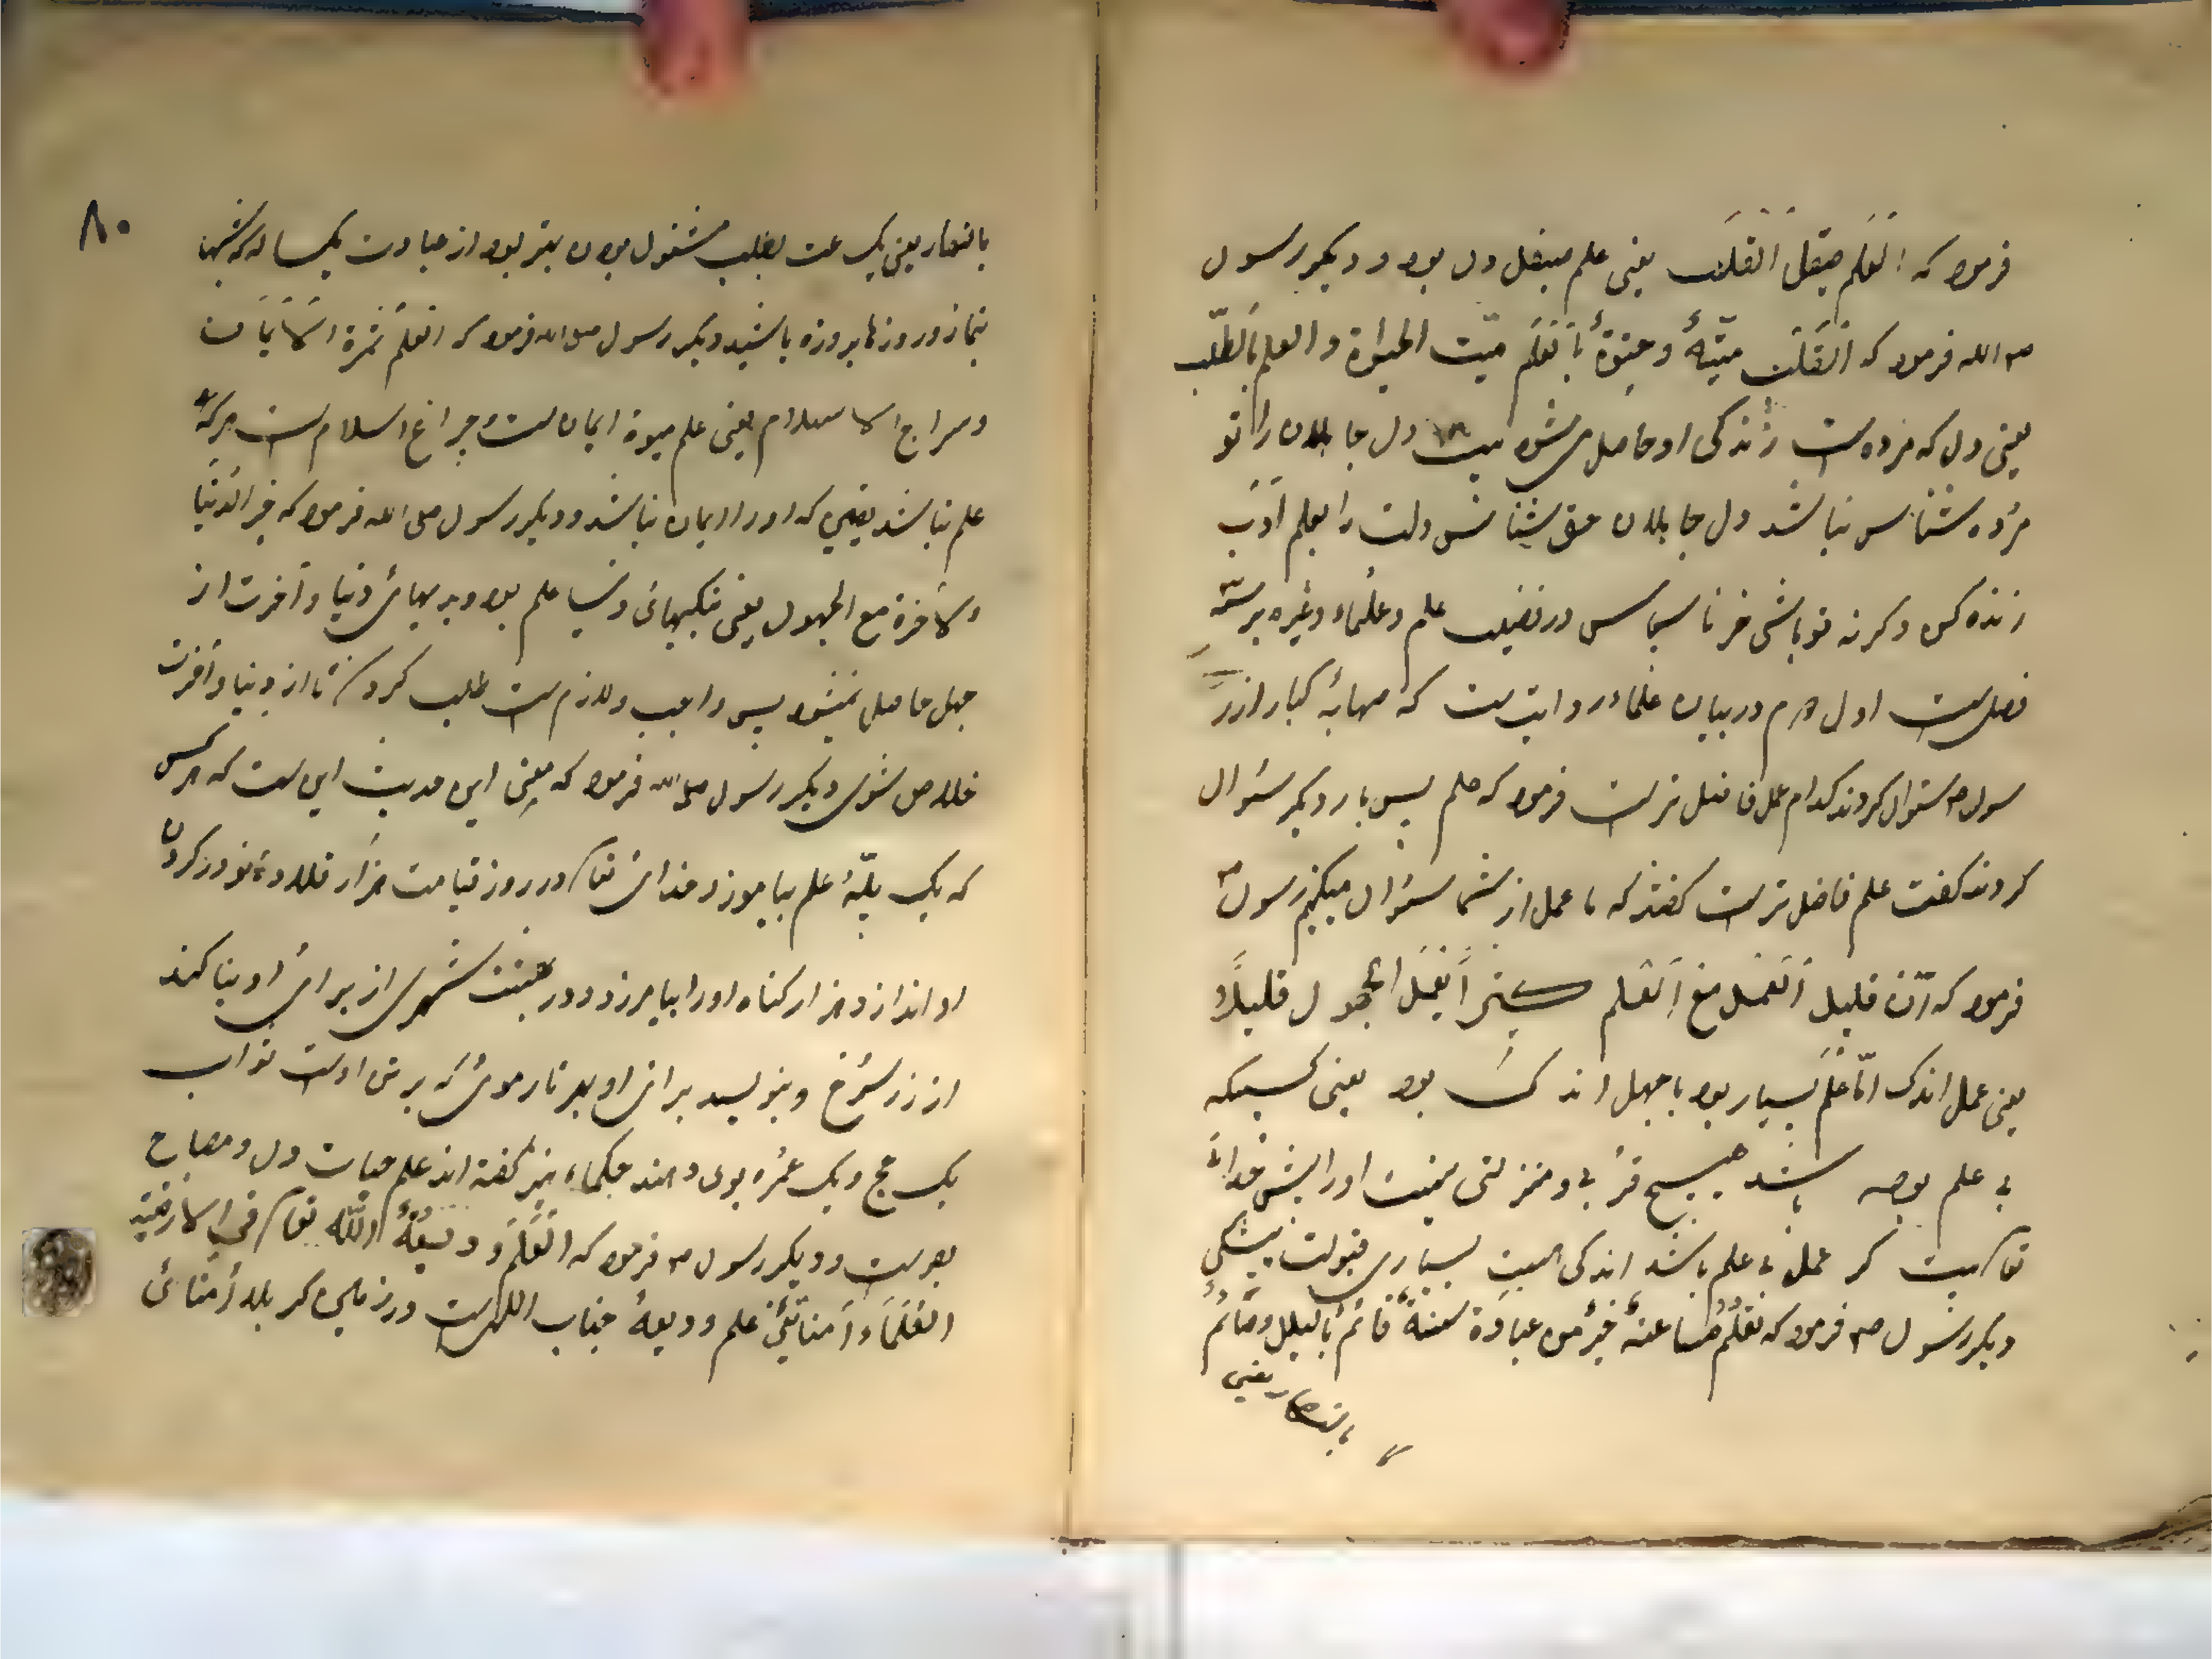 فرمود که اَلعِلم صیقل اَلقلب یعنی علم صیقل دل بود و دیگر رسول
ص الله فرمود که اَلقَلب میّتهٌ و حیوٰةٌ بِاَلعَلم میّت الحیوٰة و العلم بَالطّلب
یعنی دل که مرده است زندگی او حاصل می‌شود بیت دل جاهلان را تو
مرده شناس نباشد دل جاهلان حق شناس دلت را بعلم اَدَب
زنده کن و کرنه تو باشی خر ناسپاس در فضیلت علم و علماء و غیره بر سه
فصل است اول در بیان علماء روایت ست که صهابهٔ کبار از ر
سول ص سئوال کردند کدام عمل فاضل تر است فرمود که علم پس بار دیگر سئوال
کردند کفت علم فاضل تر است کفتند که ما عمل از شما سئوال میکنیم رسول ص
فرمود که اِنّ قلیل اَلعمَل مَع اَلعَلم کثیر اَلعَمَل الجهول قلیلاً
یعنی عمل اندک امّا علم بسیار بود با جهل اندک بود یعنی کسیکه
بی علم بوده باشد هیچ قربی و منزلتی نیست او را پیش خدای
تعا بیت کر عمل بی علم باشد اندکی است بسیاری قبولت بیشکی
دیگر رسول ص فرمود که تعلّمُ ساعتهٌ خیرٌ من عبادَة سنتهٌ قائمٌ بالّیل و صائمٌ
بالنهار یعنی
۸۰
بالنهار یعنی یک ساعت بطلب مشغول بودن بهتر بود از عبادت یکساله که شبها
بنماز و روزها بروزه باشید دیگر رسول صلی الله فرمود که العلمُ ثمرة الاَیمَان
و سراج الاسلام یعنی علم میوهٔ ایمان است و چراغ اسلام ست هر که
علم نباشد یقین که او را ایمان نباشد و دیگر رسول صلی الله فرمود که خیر الدنیا
والاخرة مع الجهول یعنی نکبهائی دنیا علم بود و بدیهائی دنیا و آخرت از
جهل حاصل نمیشود پس واجب و لازم ست طلب کردن تا از دنیا و آخرت
خلاص شوی دیگر رسول صلی الله فرمود که معنی این حدیث این ست که هرکس
که یک پلّهٔ علم بیاموزد خدای تعا در روز قیامت هزار قلادهٔ نور در کردن
او اندازد هزار کناه او را بیامرزد و در بهشت شهری از برای او بنا کند
از زر سُرخ و بنویسد برای او بهر تار موئی که بر تن اوست ثواب
یک حج و یک عمُره بوی دهند حکماء نیز کفته اند علم حیات دل و مصباح
بصر ست و دیگر رسول ص فرمود که اَلعَلَم وَ دیعَةُ اللّٰه تعا فی الارضیه
العُلَمَاء اَمناَئیِ علم و دیعهٔ جناب الله ست در زمین که بلاد اُمنائی